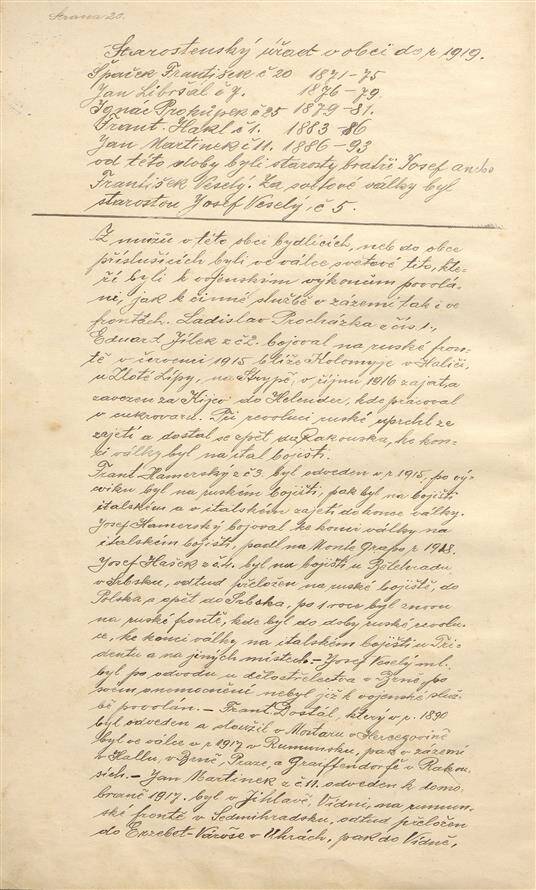 Strana 20.
Starostenský úřad v obci do r 1919.
Špaček František č 20 1871–75
Jan Libršál č 7. 1876–79.
Ignác Prokůpek č 25 1879–81.
Frant. Hakl č 1. 1883–86
Jan Martinek č 11. 1886–93
od této doby byli starosty bratři Josef anebo
František Veselý. Za světové války byl
starostou Josef Veselý, č 5.
Z mužů v této obci bydlících, neb do obce
příslušících byli ve válce světové tito, kte-
ří byli k vojenským výkonům povolá-
ni, jak k činné službě v zázemí tak i ve
frontách. Ladislav Procházka z čís. 1.,
Eduart Jílek z č 2. bojoval na ruské fron-
tě v červenci 1915 blíže Kolomyje v Haliči,
u Zloté Lípy, na Strypě, v říjnu 1916 zajat a
zavezen za Kijev do Helender, kde pracoval
v cukrovaru. Při revoluci ruské uprchl ze
zajetí a dostal se zpět do Rakouska, ke kon-
ci války byl na ital. bojišti.
Frant. Hamerský z č 3. byl odveden v r 1915, po vý-
cviku byl na ruském bojišti, pak byl na bojišti
italském a v italském zajetí do konce války.
Josef Hamerský bojoval ke konci války na
italském bojišti, padl na Monte Grapa r 1918.
Josef Hašek z č 4. byl na bojišti u Bělehradu
v Srbsku, odtud přeložen na ruské bojiště, do
Polska a zpět do Srbska, po 1 roce byl znovu
na ruské frontě, kde byl do doby ruské revolu-
ce, ke konci války na italském bojišti u Tri-
dentu a na jiných místech. – Josef Veselý ml.
byl po odvodu u dělostřelectva v Brně, po
svém onemocnění nebyl již k vojenské služ-
bě povolán. – Frant. Dostál, který v r. 1890
byl odveden a sloužil v Mostaru v Hercegovině
byl ve válce v r 1917 v Rumunsku, pak v zázemí
v Hallu, v Brně, Praze, a Graffendorfě v Rakou-
sích. – Jan Martinek z č 11. odveden k domo-
braně 1917. byl v Jihlavě, Vídni, na rumun-
ské frontě v Sedmihradsku, odtud přeložen
do Erzebet-Várose v Uhrách, pak do Vídně,